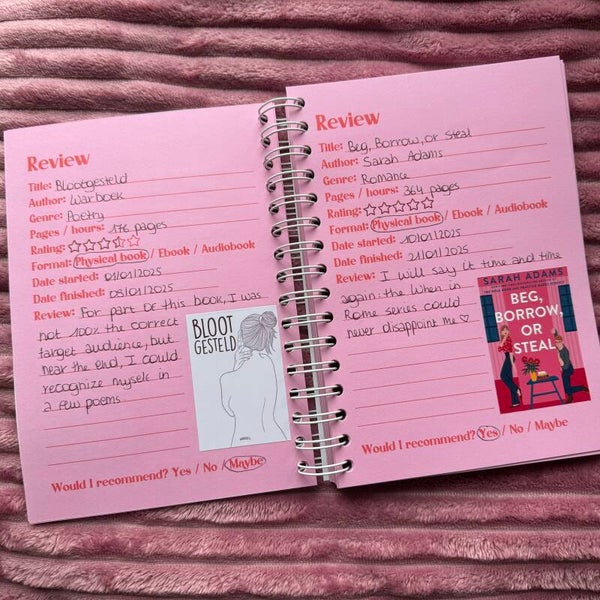 Review
Title: Blootgesteld
Author: Warboek
Genre: Poetry
Pages / hours: 176 pages
Rating:
Format: Physical book / Ebook / Audiobook
Date started: 01/01/2025
Date finished: 05/01/2025
Review: For part of this book, I was
not 100% the correct
target audience, but
near the end, I could
recognize myself in
a few poems
BLOOT
GESTELD
Would I recommend? Yes / No / Maybe
Review
Title: Beg, Borrow, or Steal
Author: Sarah Adams
Genre: Romance
Pages / hours: 364 pages
Rating:
Format: Physical book / Ebook / Audiobook
Date started: 10/01/2025
Date finished: 21/01/2025
Review: I will say it time and time
again: the When in
Rome series could
never disappoint me ♡
SARAH ADAMS
BEG,
BORROW,
OR
STEAL
Would I recommend? Yes / No / Maybe